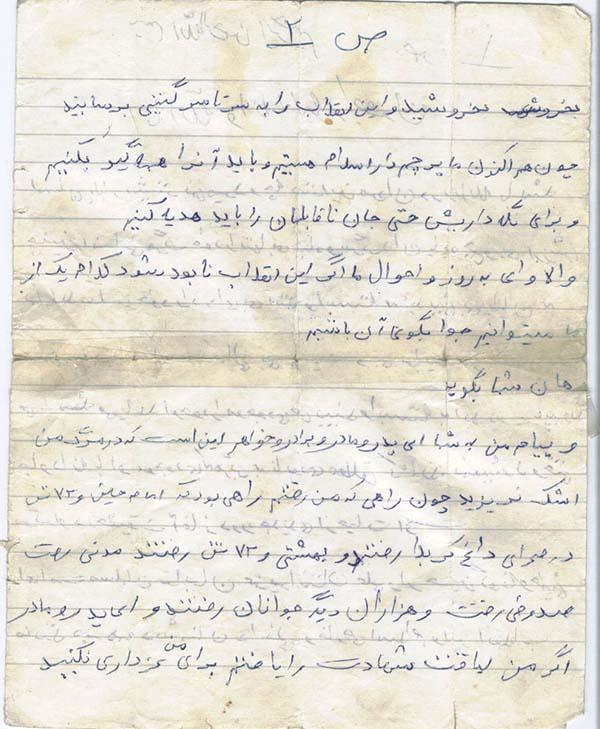 ص ۲
بخروشید و این انقلاب را به سرتاسر گیتی برسانید
چون هم اکنون ما پرچم دار اسلام هستیم و باید آنرا همه گیر بکنیم
و برای نگه داریش حتی جان ناقابلمان را باید هدیه کنیم
والا وای به روز و احوال ما اگر این انقلاب نابود شود کدام یک از
ما میتوانیم جوابگوی آن باشیم
هان شما بگوید
و پیام من به شما ای پدر و مادر و برادر و خواهر این است که در مرگ من
اشک نریزید چون راهی که من رفتم راهی بود که امام حسین و ۷۲ تن
در صحرای داغ کربلا رفتند و بهشتی و ۷۲ تن رفتند مدنی رفت
صدوقی رفت و هزاران دیگر جوانان رفتند و ای پدر و مادر
اگر من لیاقت شهادت را یافتم برای من عزداری نکنید